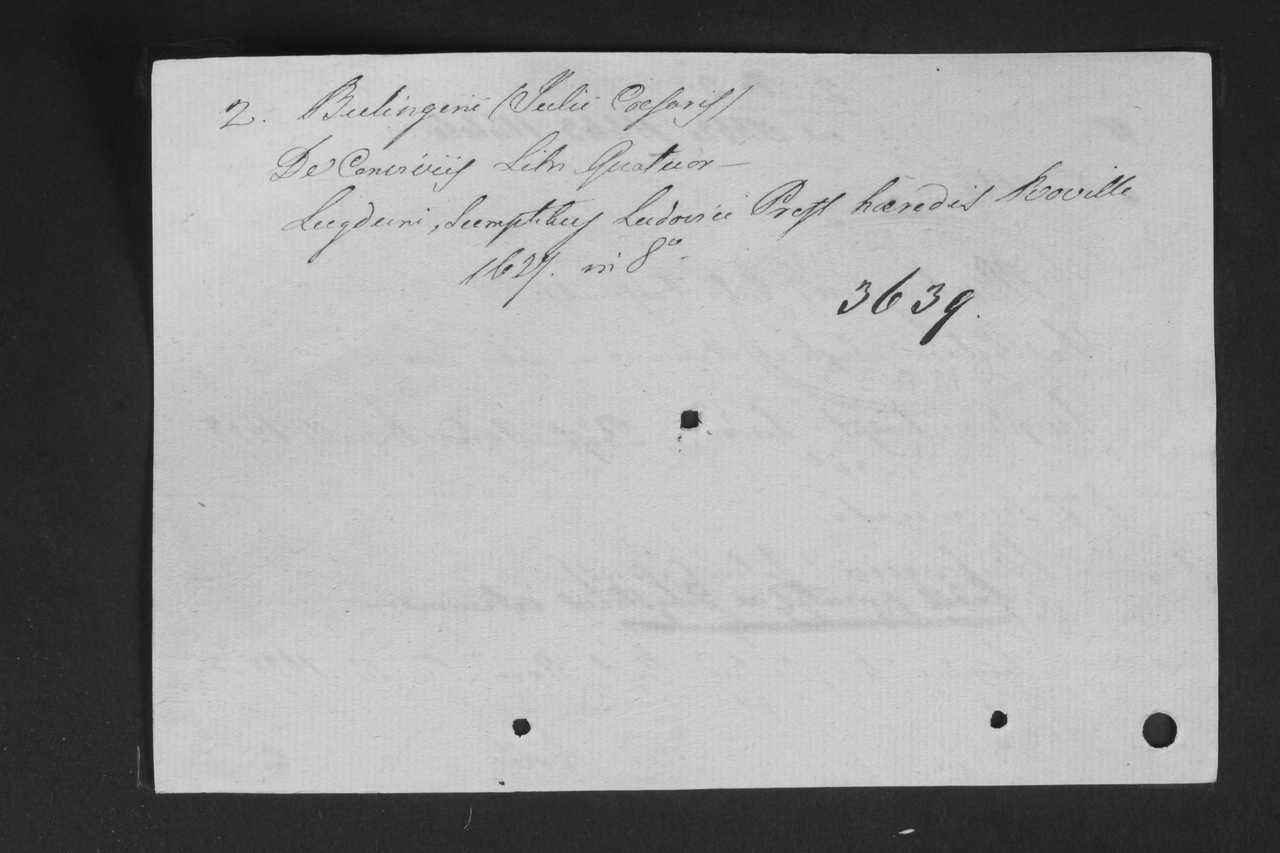 2. Bulingerii (Julii Caesaris)
De Conviviis Libr Quatuor—
Lugduni, Sumptibus Ludovici Prost haeredis Roville
1627. in 8o.
3639.